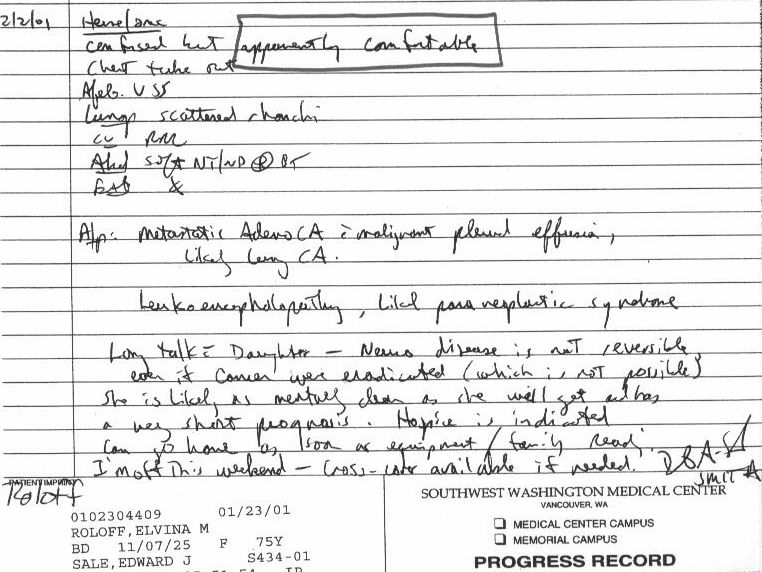 2/2/01 Heme/onc
confused but apparently comfortable
Chest tube out
Afeb. VSS
Lungs scattered rhonchi
CV RRR
Abd soft NT/ND ⊕ BT
Ext
A/p: Metastatic Adeno CA c̄ malignant pleural effusion,
likely lung CA.
Leukoencephalopathy, likel paraneoplastic syndrome
Long talk c̄ Daughter — Neuro disease is not reversible,
even if Cancer were eradicated (which is not possible)
She is likely as mentally clear as she will get and has
a very short prognosis. Hospice is indicated
Can go home as soon as equipment / family ready.
I'm off this weekend — Cross-cover available if needed.
PATIENT IMPRINT
Roloff
0102304409 01/23/01
ROLOFF,ELVINA M
BD 11/07/25 F 75Y
SALE,EDWARD J S434-01
SOUTHWEST WASHINGTON MEDICAL CENTER
VANCOUVER, WA
MEDICAL CENTER CAMPUS
MEMORIAL CAMPUS
PROGRESS RECORD